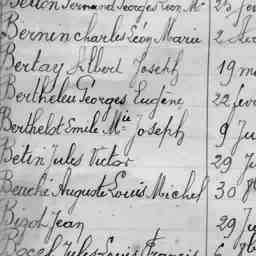 Fernand Georges Léon Mie 23 fév
Bernen Charles Léon Marie 2
Bertay Albert Joseph 19 ma
Bertheleu Georges Eugène 22 fév
Berthelot Emile Mie Joseph 9 Ju
Bétin Jules Victor 29 Ju
Beuché Auguste Louis Michel 30
Bizot Jean 29 Ju
Bocel Jules Louis Francis 6